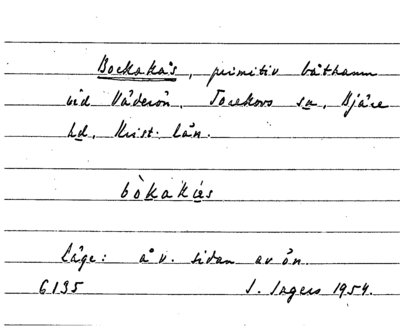 Bockakås, primitiv båthamn
vid Väderön, Torekovs sn, Bjäre
hd, Krist. län.
bòkakås
läge: å v. sidan av ön.
6135 I. Ingers 1954.